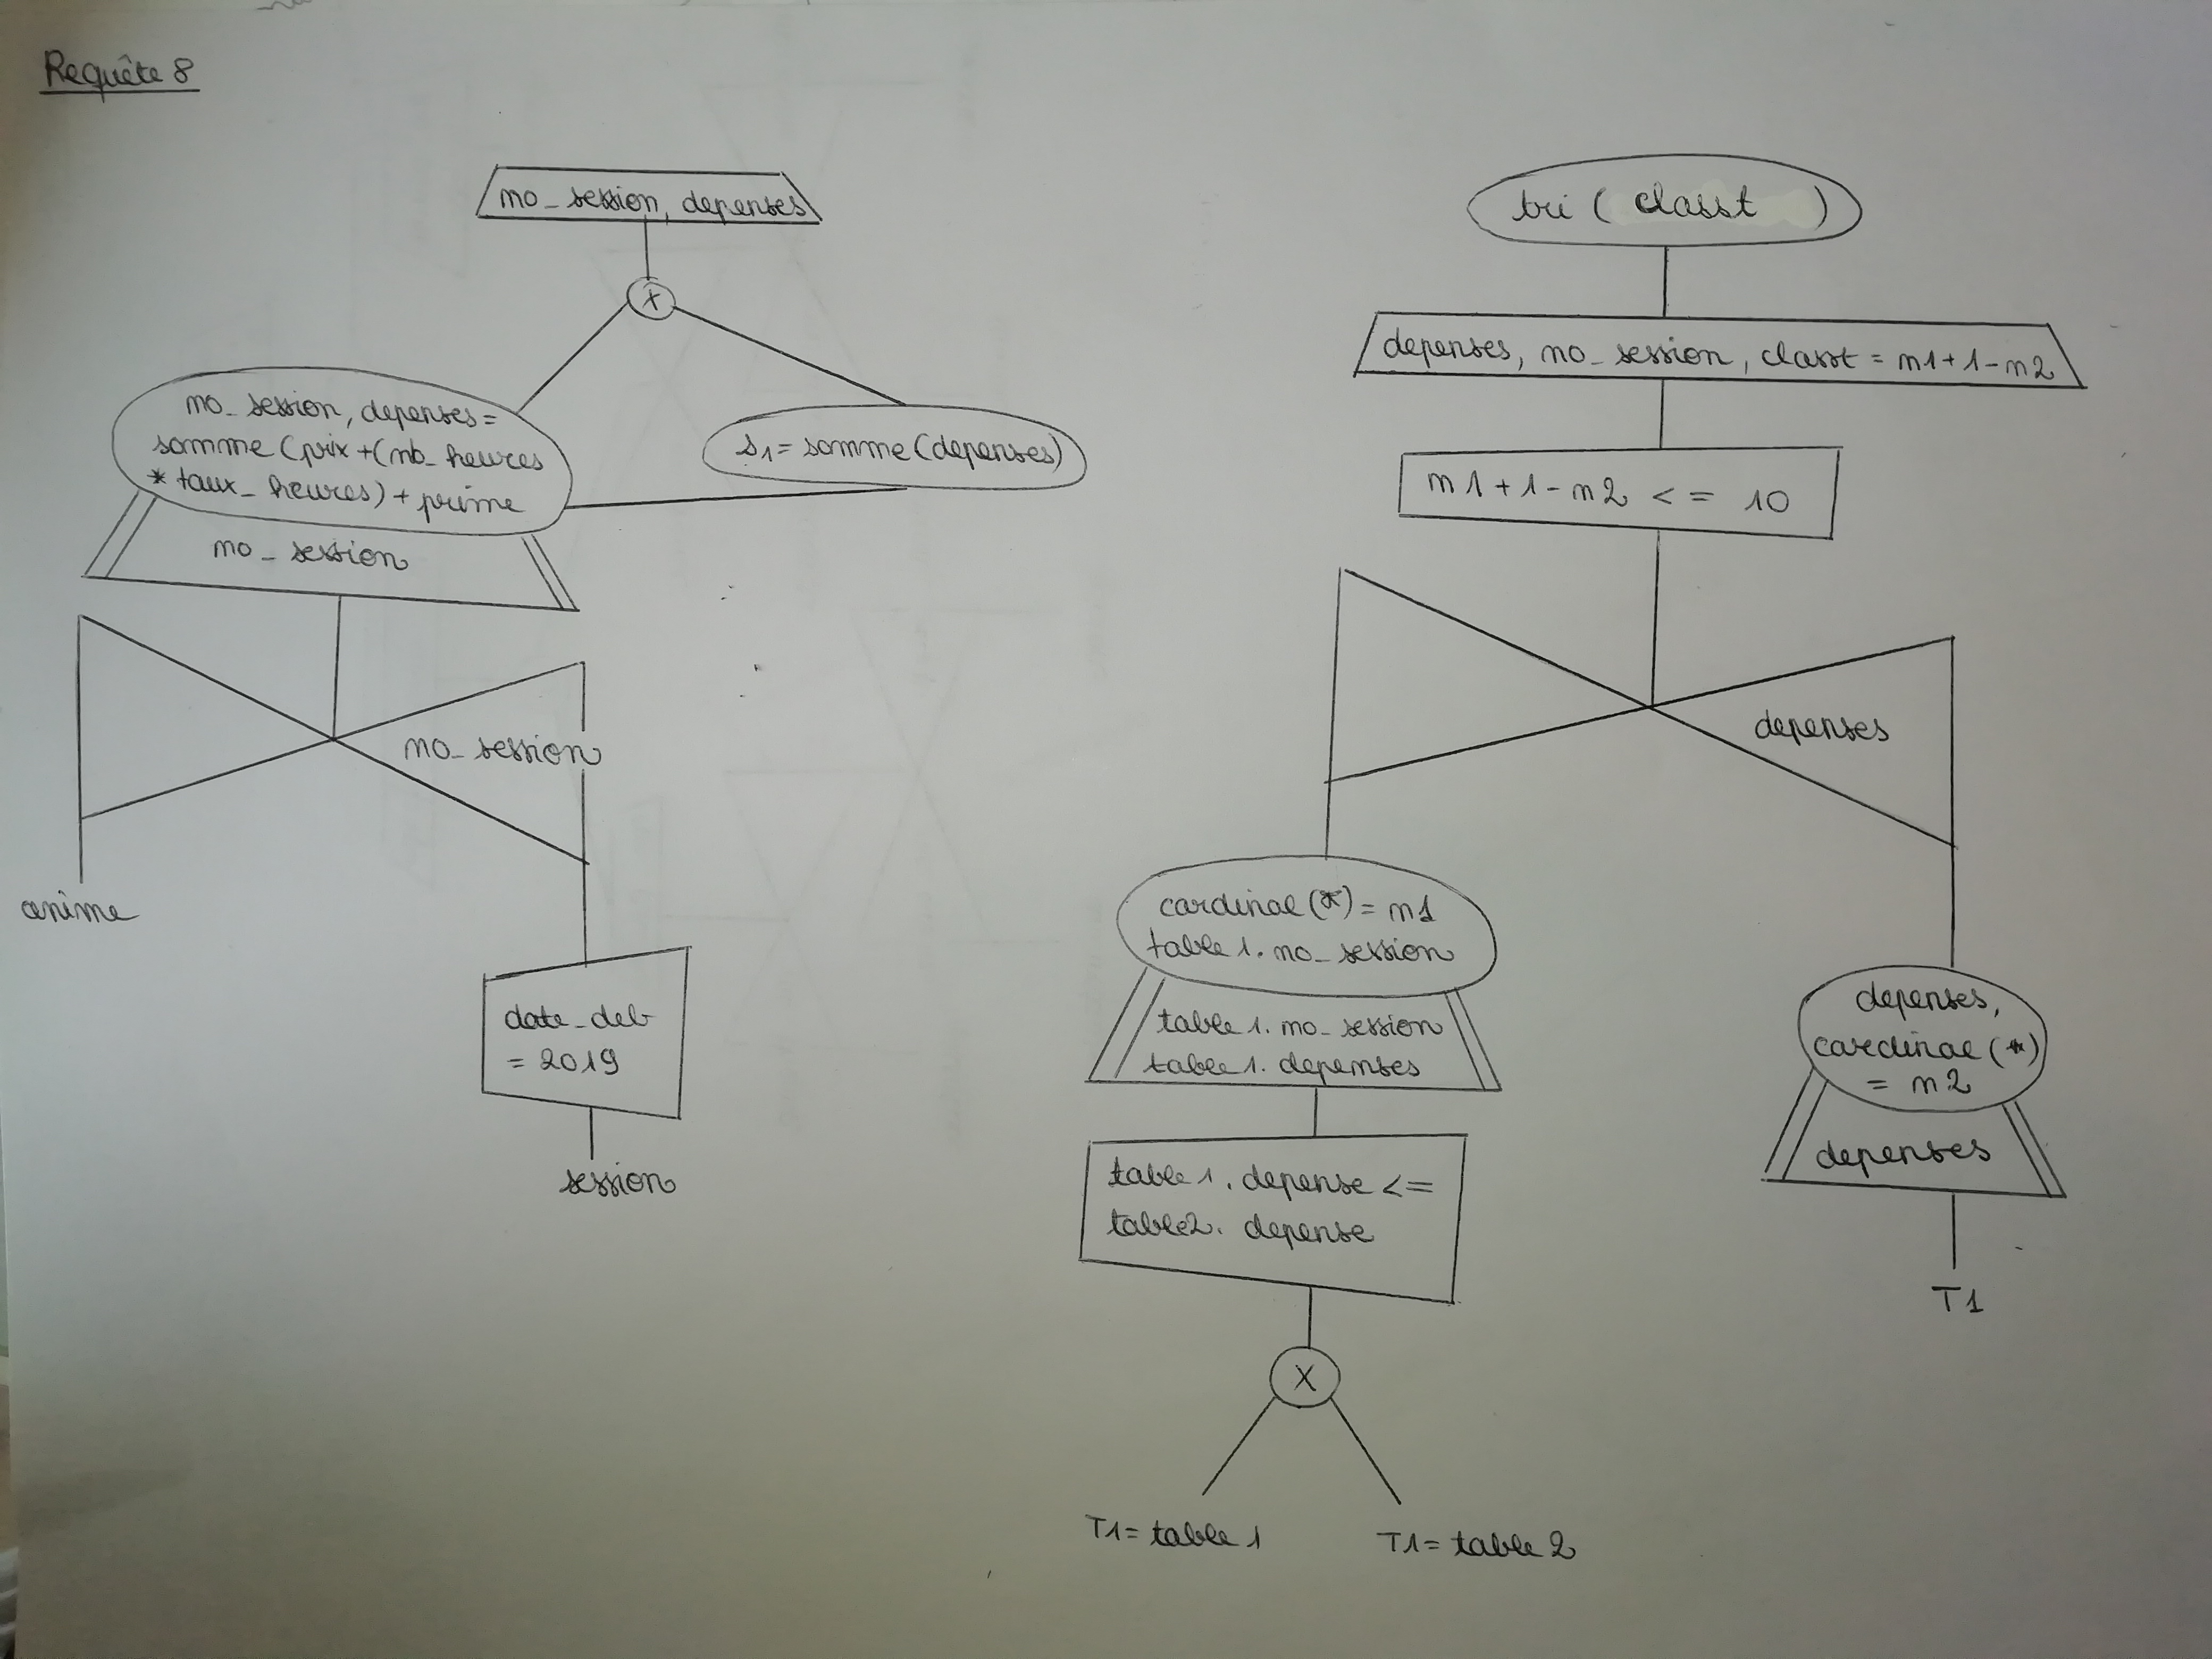 Requête 8
no_session, depenses
x
no_session, depenses =
somme (prix + (nb_heures
* taux_heures) + prime
s1 = somme (depenses)
no_session
no_session
anime
date_deb
= 2019
session
tri ( classt )
depenses, no_session, classt = n1+1-n2
n1+1-n2 <= 10
depenses
cardinal (*) = n1
table 1. no_session
table 1. no_session
table 1. depenses
table 1. depense <=
table2. depense
X
T1 = table 1
T1 = table 2
depenses,
cardinal (*)
= n2
depenses
T1